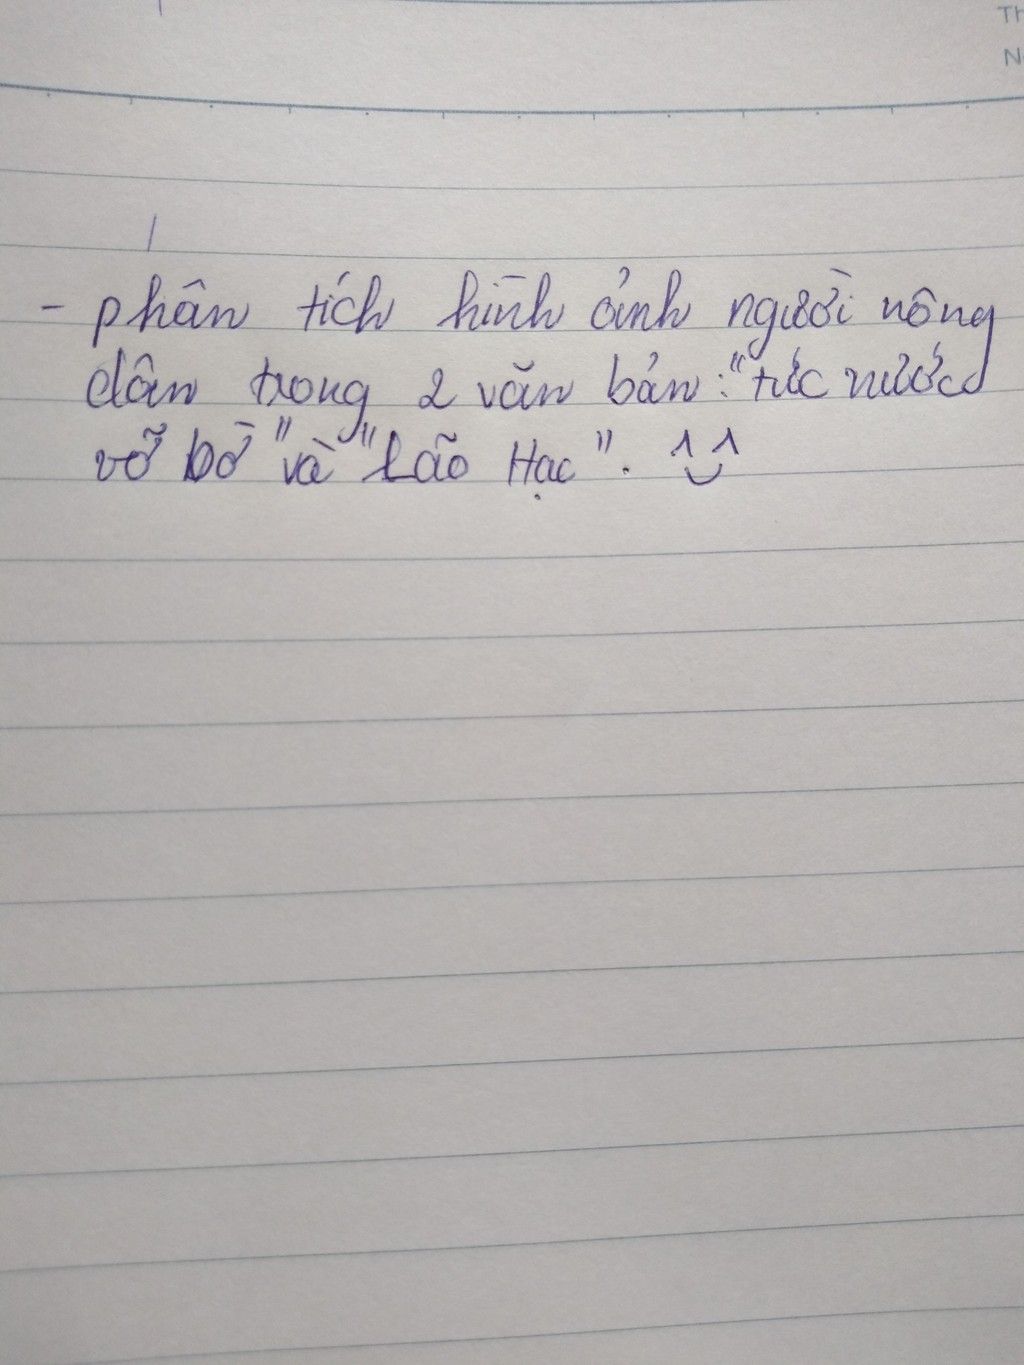 Th
N
- phân tích hình ảnh người nông
dân trong 2 văn bản : "tức nước
vỡ bờ" và "Lão Hạc". ^‿^